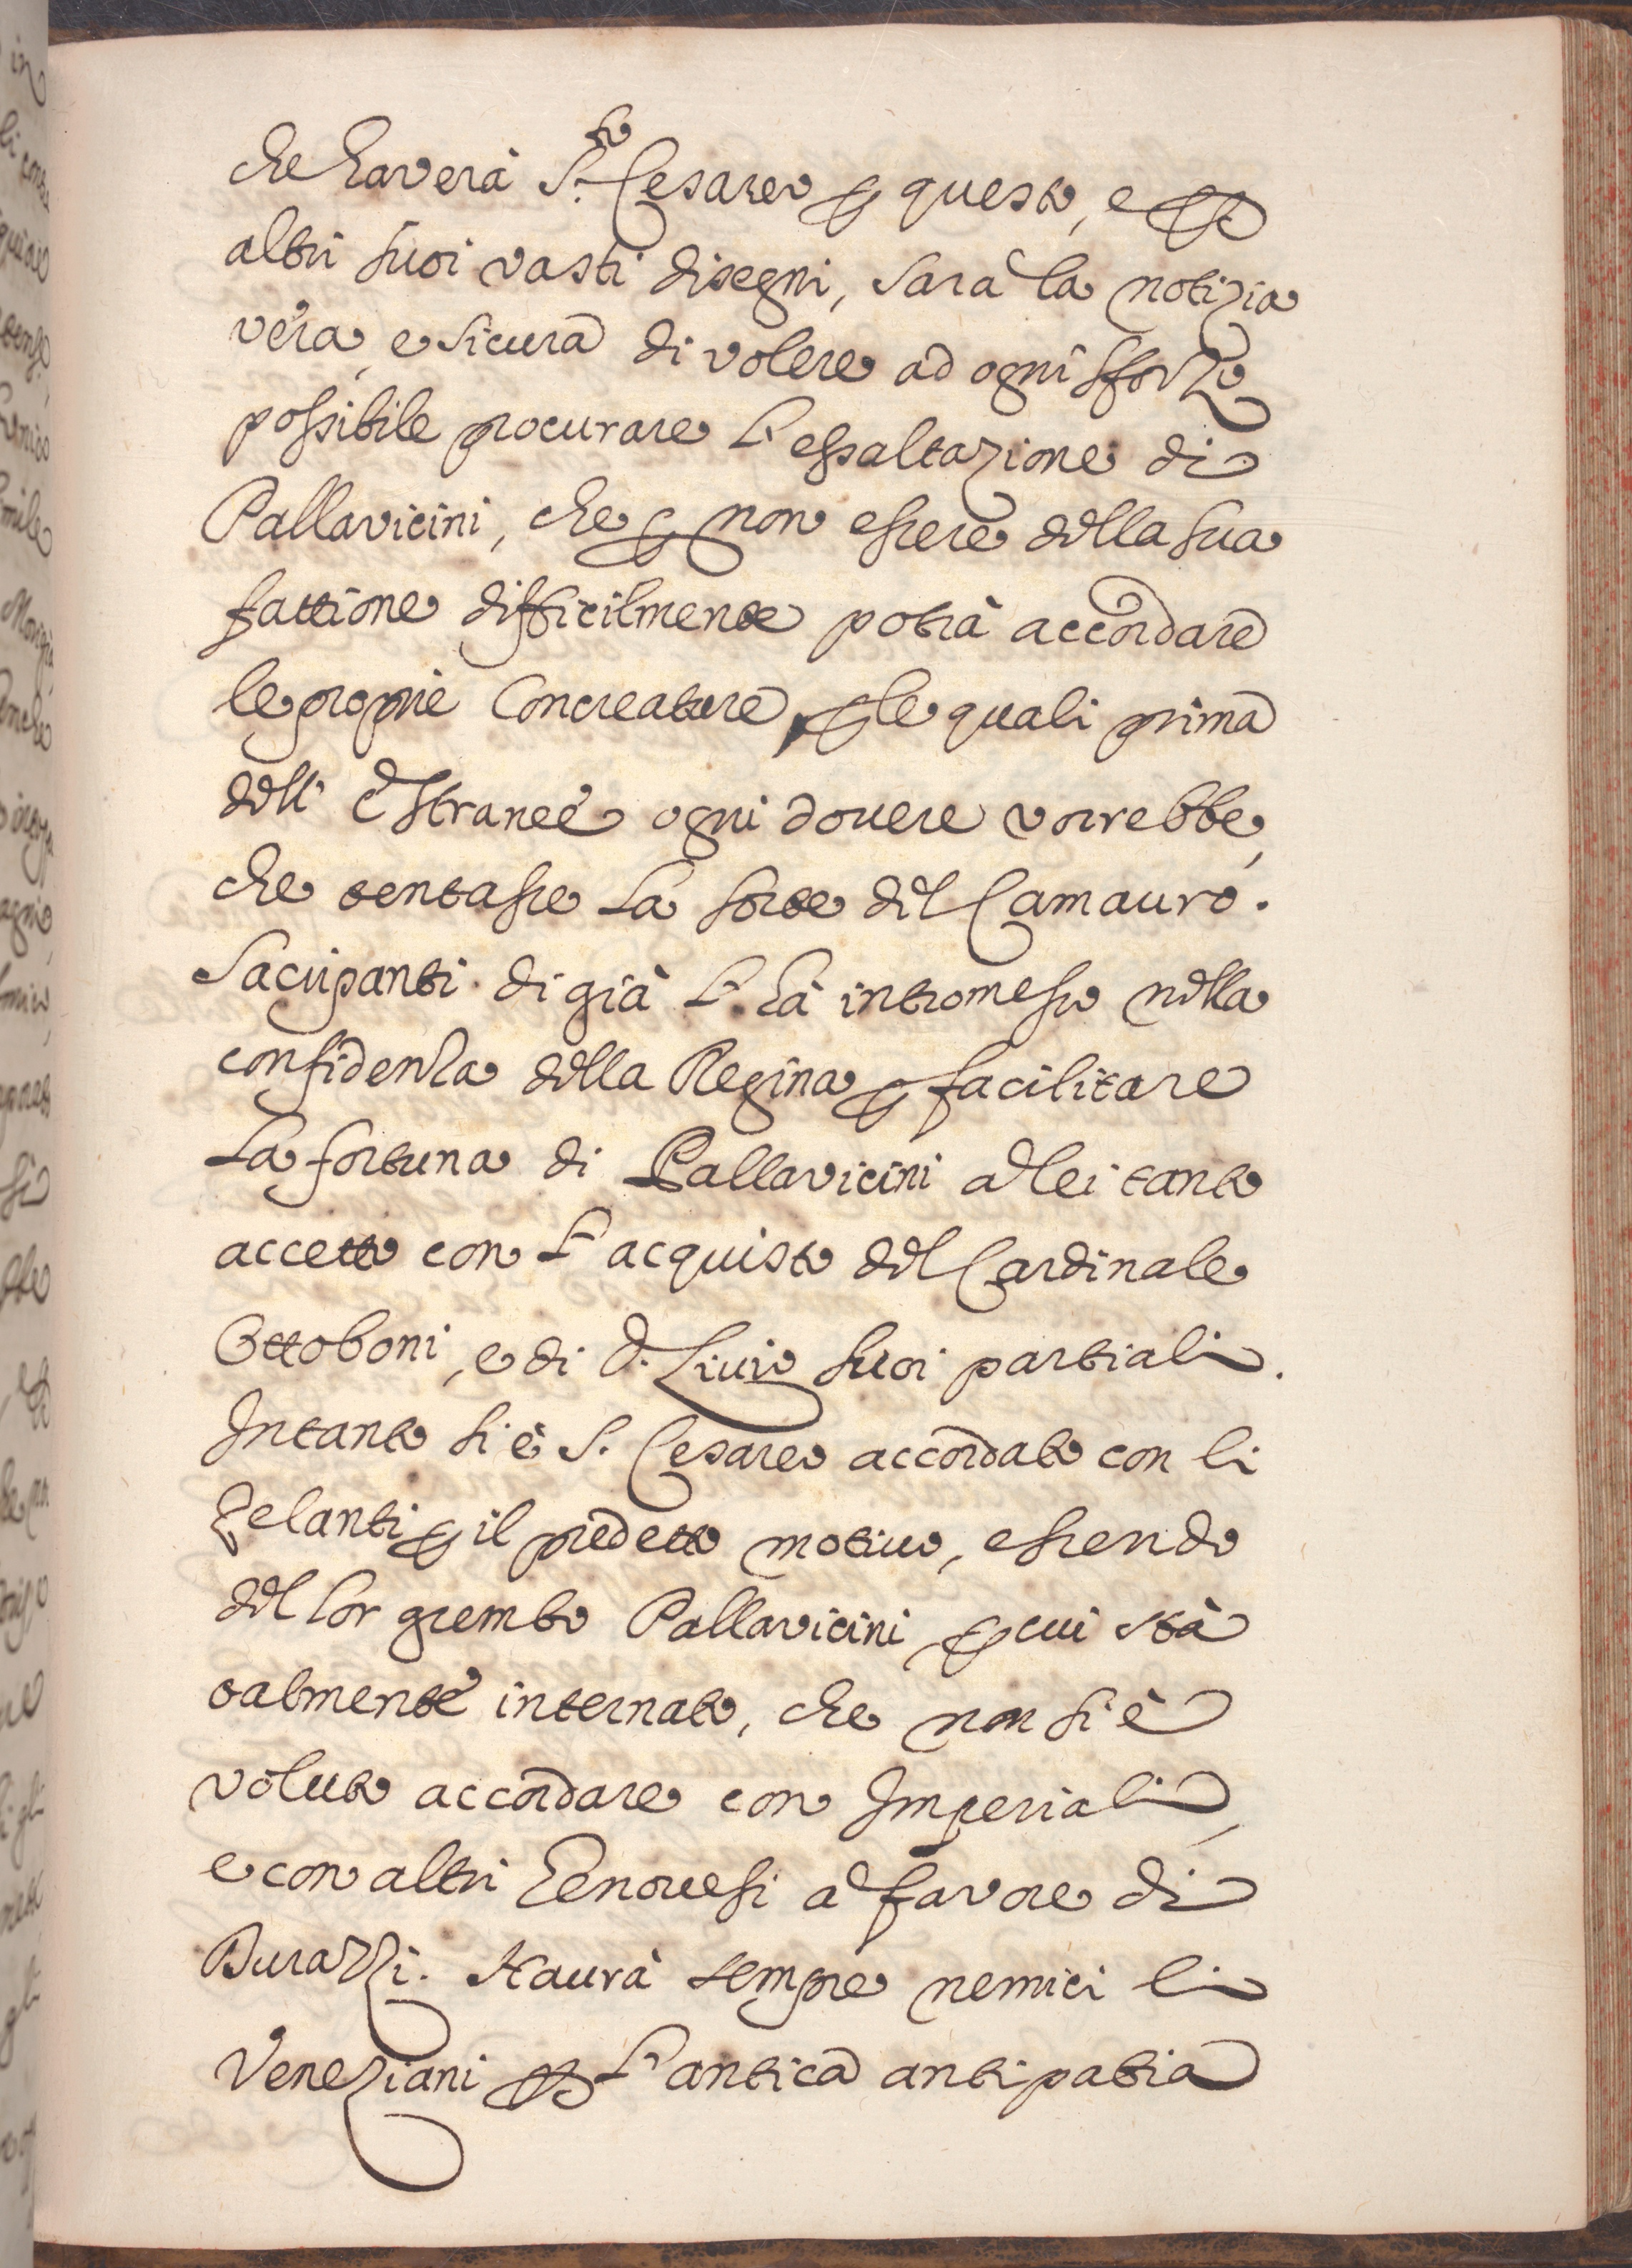 che haverà S.to Cesareo p questo, e p
altri suoi vasti disegni, sarà la notizia
vera, e sicura di volere ad ogni sforzo
possibile procurare l'essaltazione di
Pallavicini, che p non essere della sua
fattione difficilmente potrà accordare
le proprie Concreature, p le quali prima
dell' Estranee ogni dovere vorrebbe,
che tentasse la sorte del Camauro.
Sacripanti di già l'hà intromesso nella
confidenza della Regina p facilitare
la fortuna di Pallavicini a lei tanto
accetto con l'acquisto del Cardinale
Ottoboni, e di D. Livio suoi partiali.
Intanto si è S. Cesareo accordato con li
Zelanti p il predetto motivo, essendo
del lor grembo Pallavicini, p cui stà
talmente internato, che non si è
voluto accordare con Imperiali,
e con altri Genovesi a favore di
Durazzi. Haurà sempre nemici li
Veneziani p l'antica antipatia